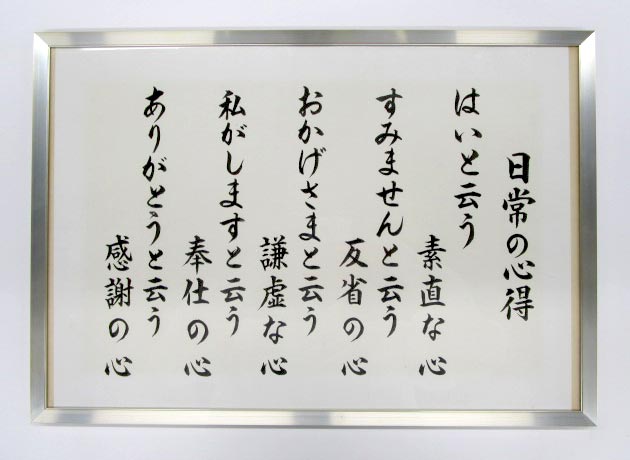 日常の心得
はいと云う
素直な心
すみませんと云う
反省の心
おかげさまと云う
謙虚な心
私がしますと云う
奉仕の心
ありがとうと云う
感謝の心